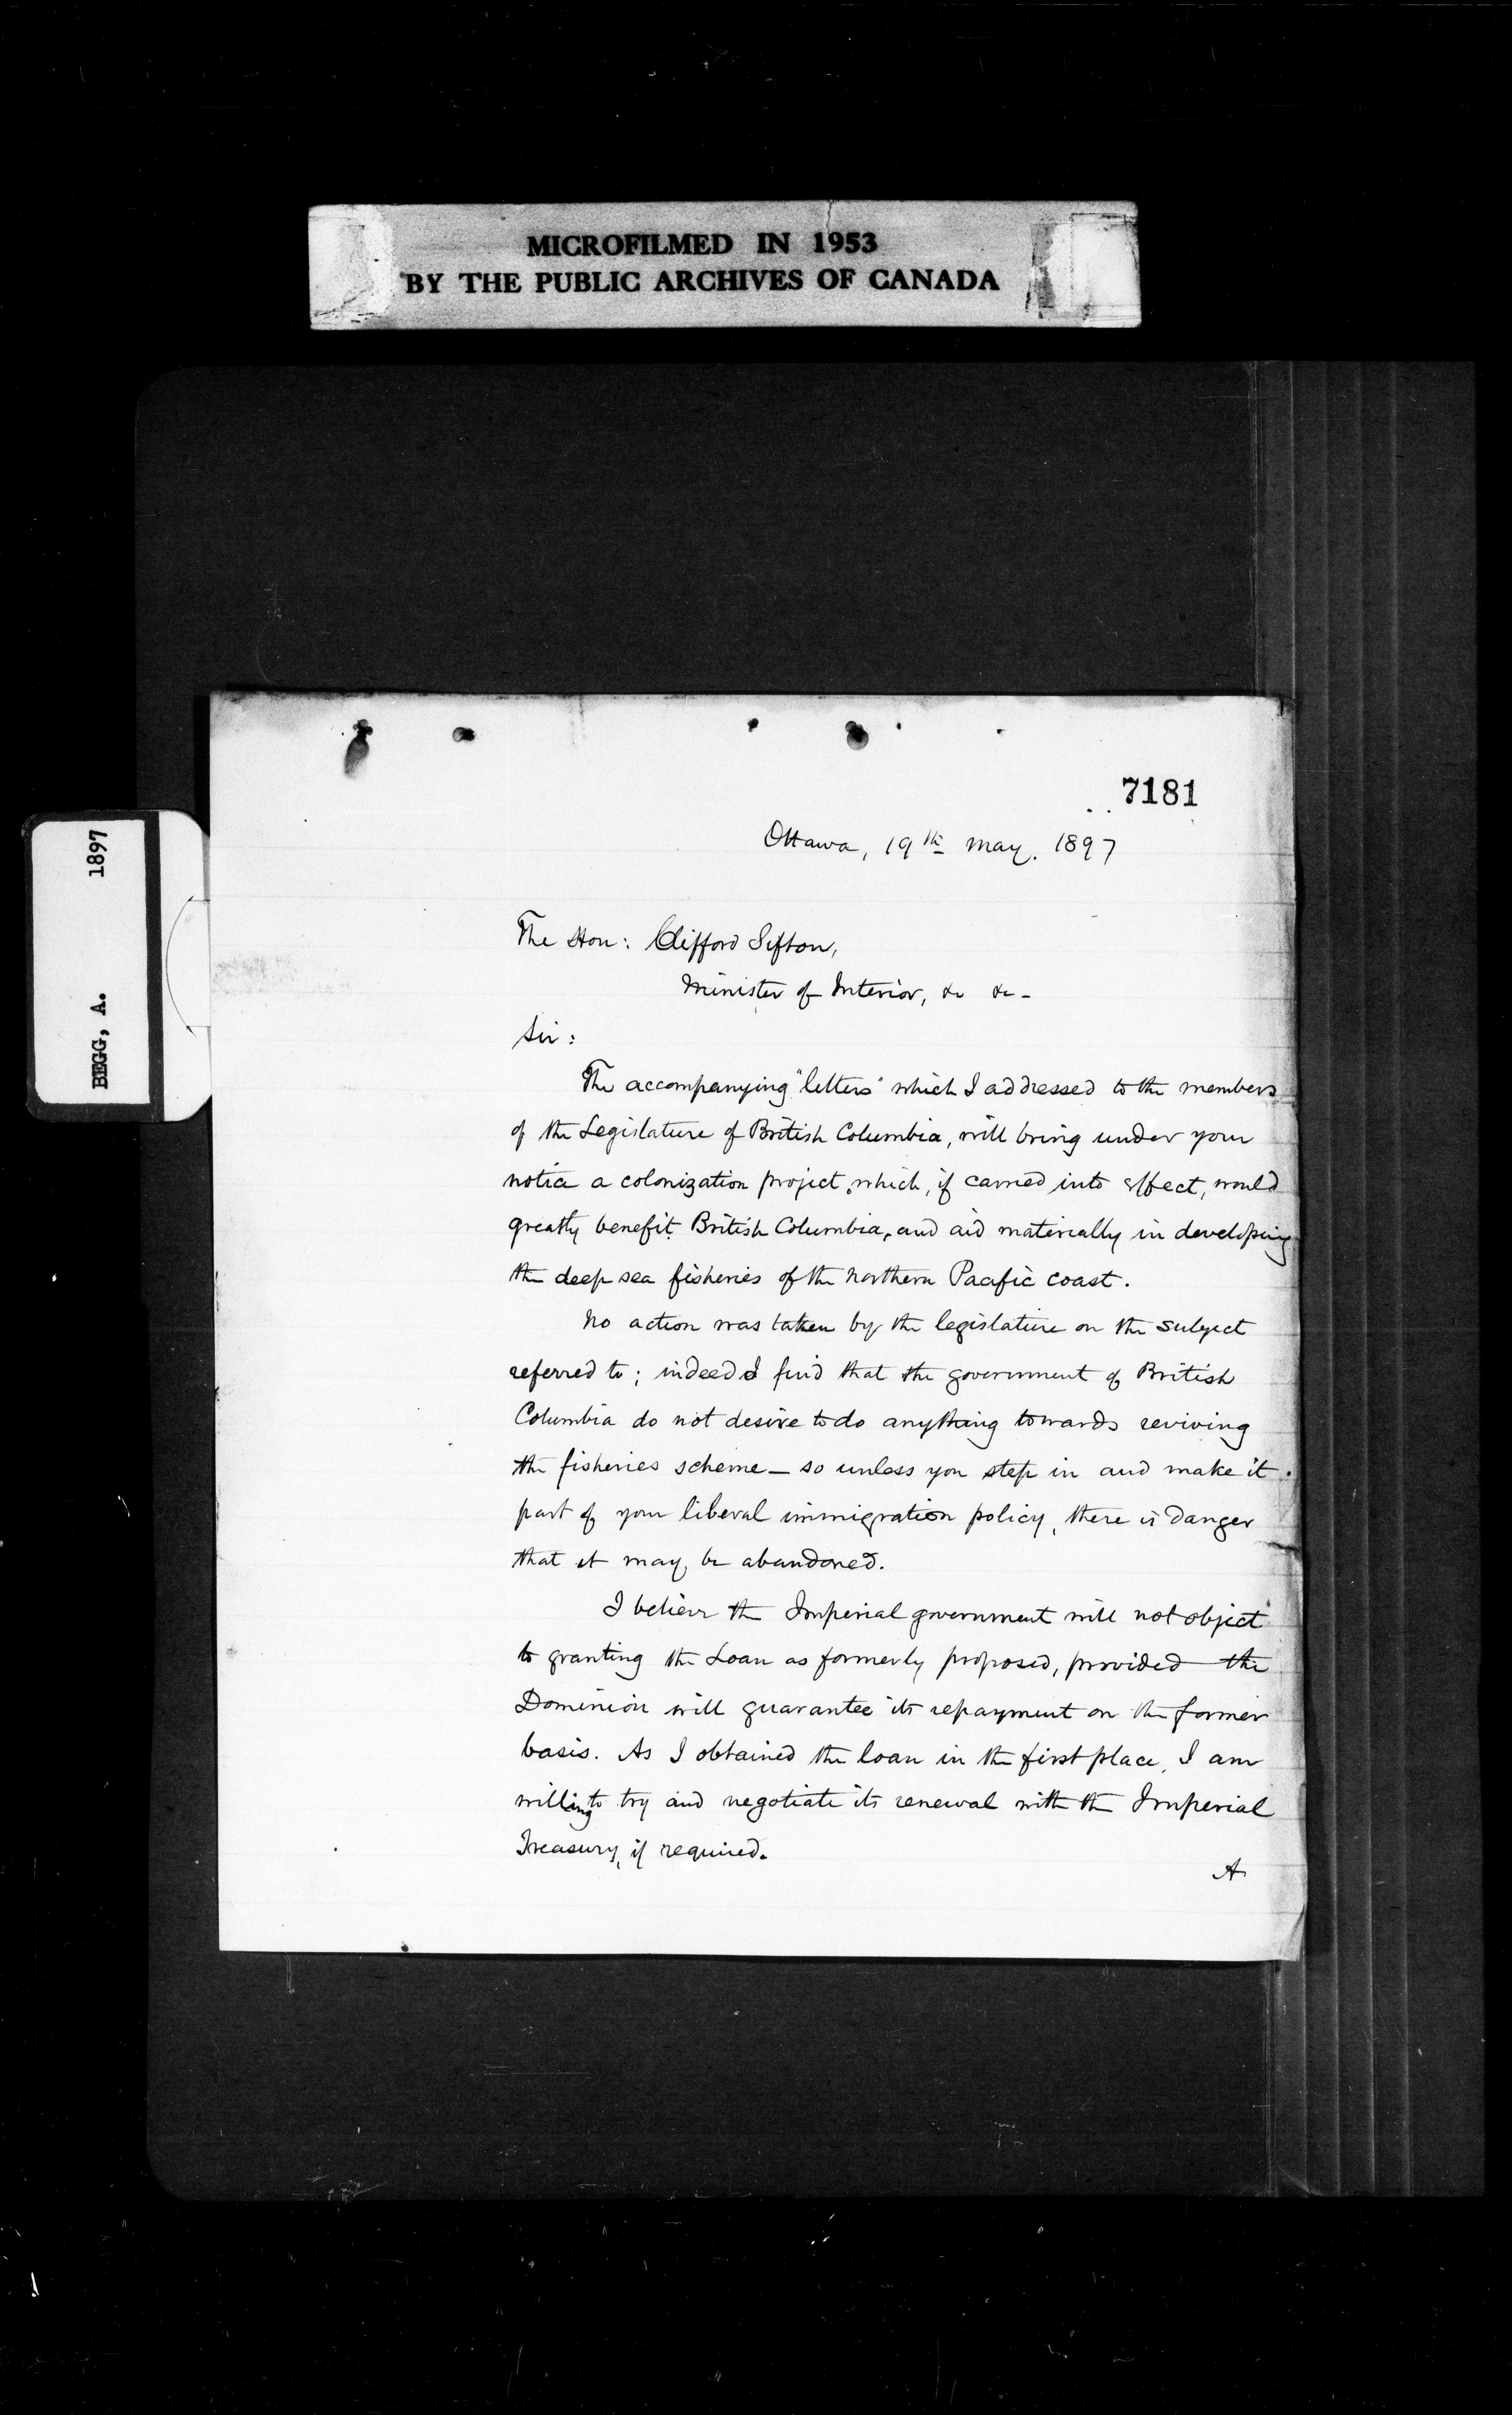 MICROFILMED IN 1953
BY THE PUBLIC ARCHIVES OF CANADA
BEGG, A. 1897
7181
Ottawa, 19th May. 1897
The Hon: Clifford Sifton,
Minister of Interior, &c &c -
Sir:
The accompanying "letters" which I addressed to the members
of the Legislature of British Columbia, will bring under your
notice a colonization project, which, if carried into effect, would
greatly benefit British Columbia, and aid materially in developing
the deep sea fisheries of the northern Pacific coast.
No action was taken by the legislature on the subject
referred to; indeed I find that the government of British
Columbia do not desire to do anything towards reviving
the fisheries scheme — so unless you step in and make it
part of your liberal immigration policy, there is danger
that it may be abandoned.
I believe the Imperial government will not object
to granting the Loan as formerly proposed, provided the
Dominion will guarantee its repayment on the former
basis. As I obtained the loan in the first place, I am
willing to try and negotiate its renewal with the Imperial
Treasury, if required.
A